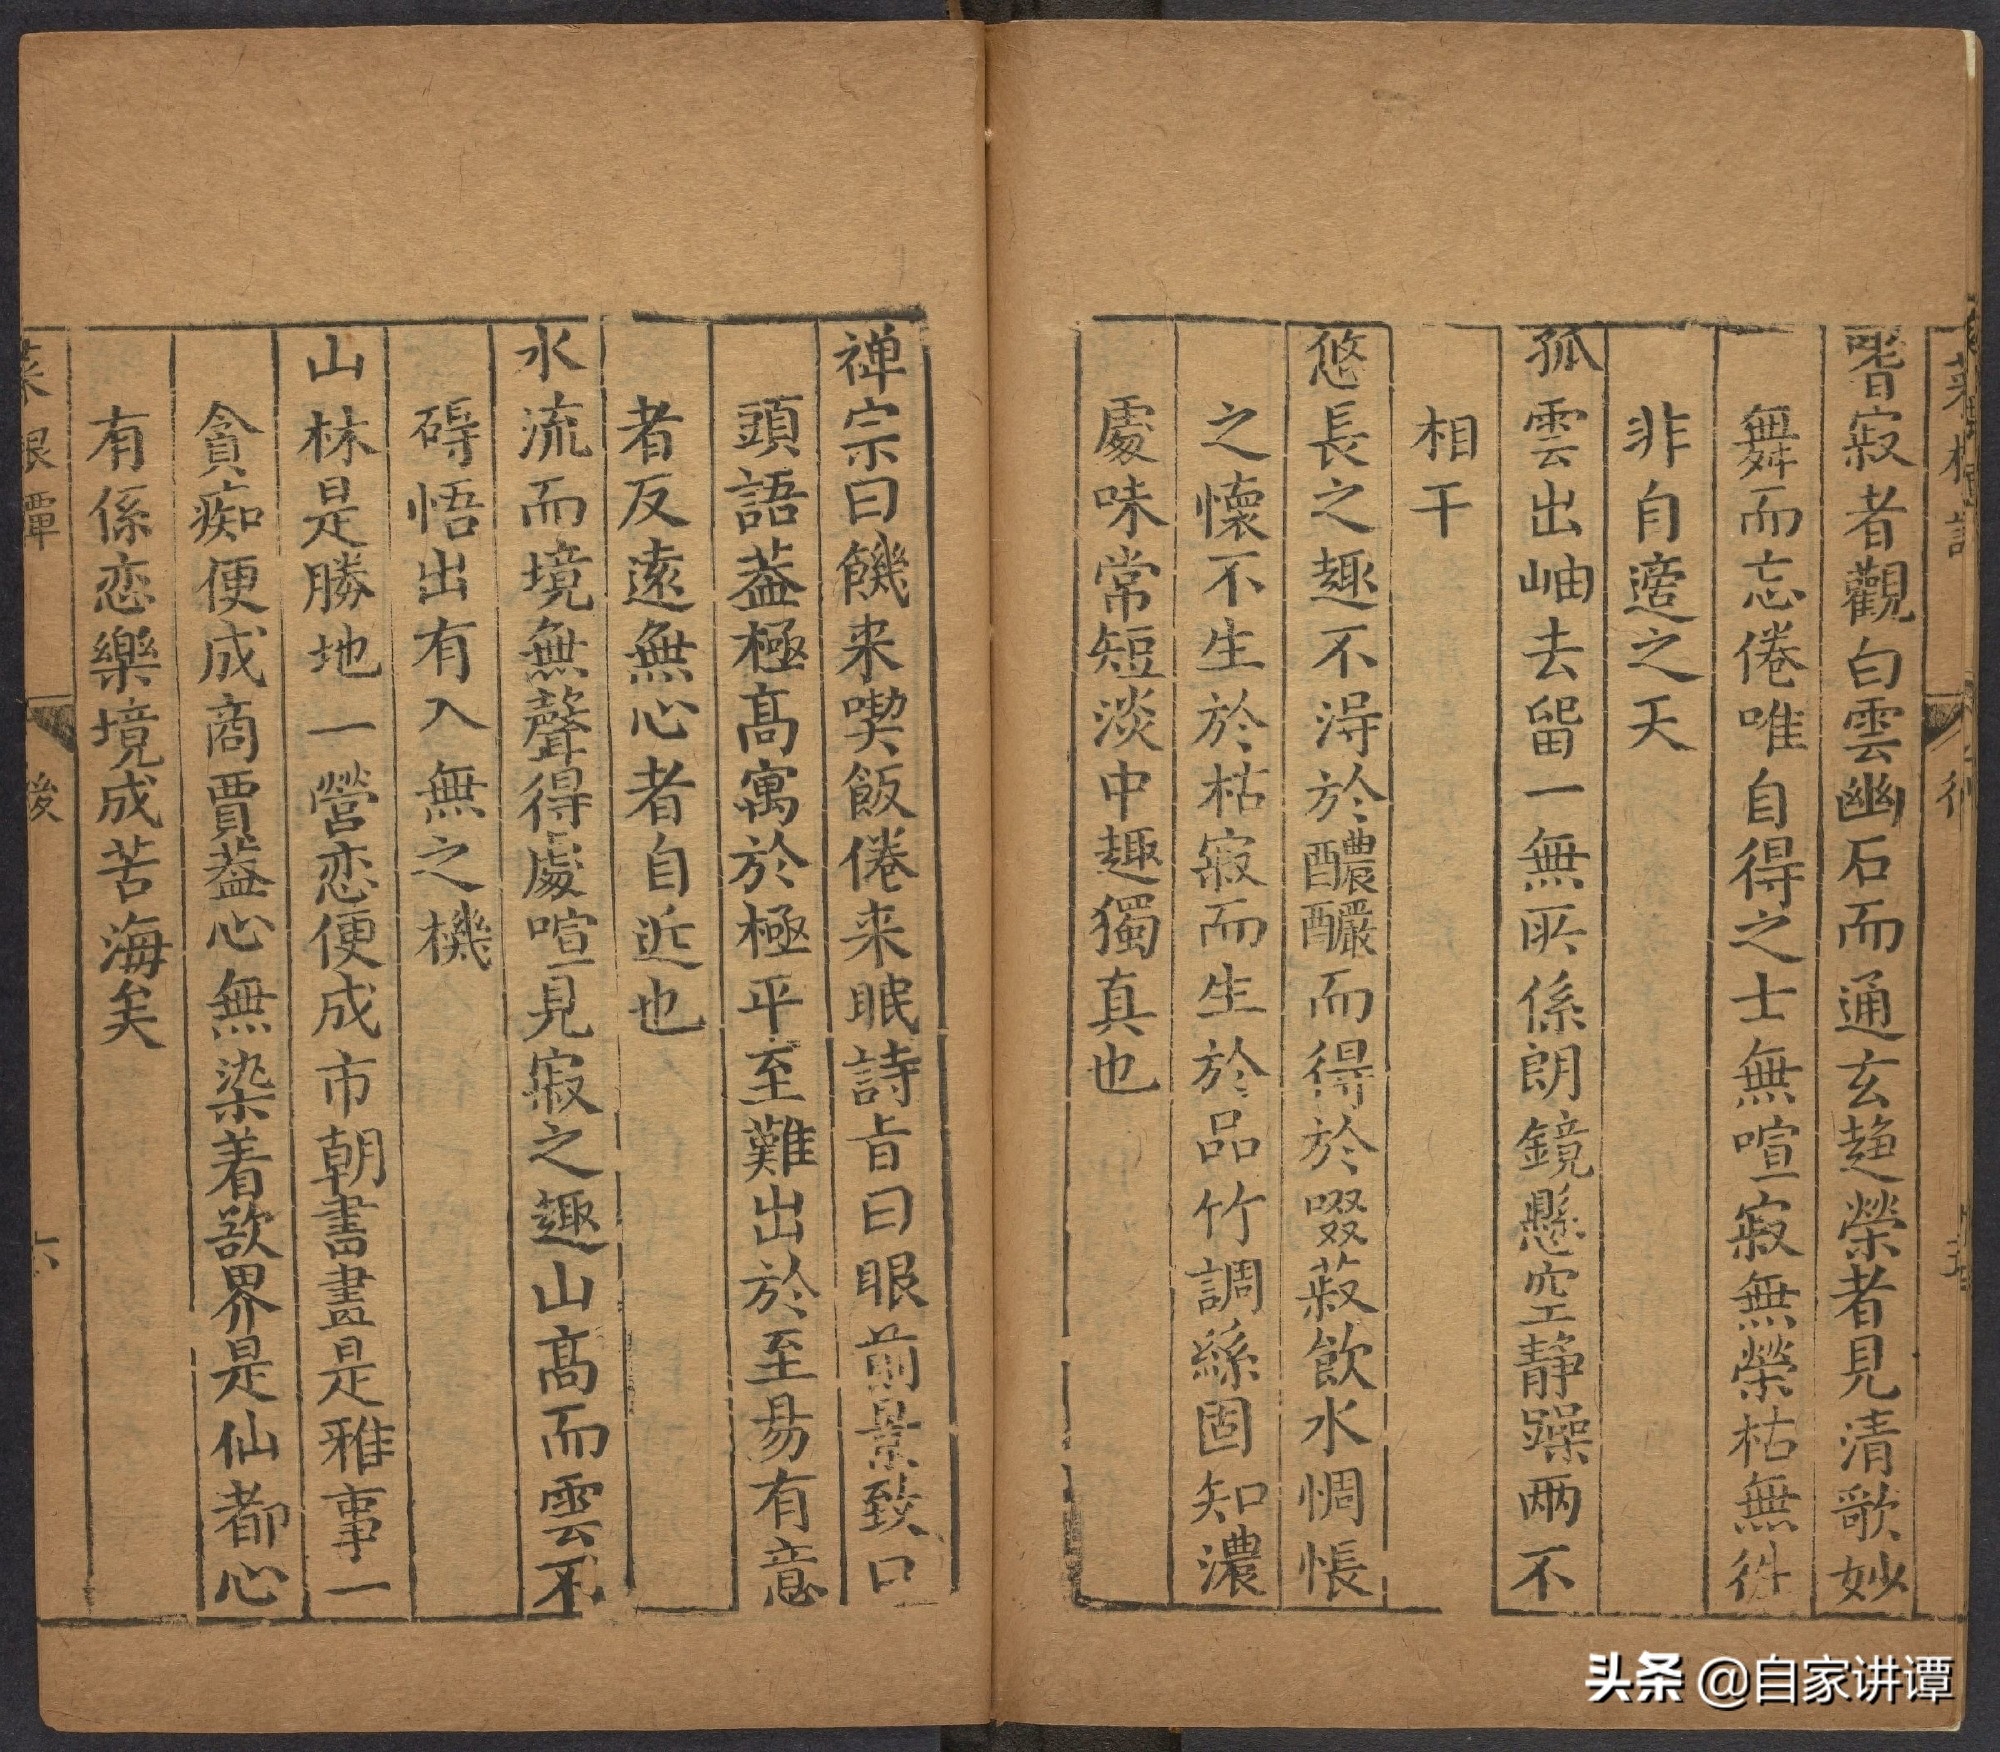 嗜寂者觀白雲幽石而通玄趨榮者見清歌妙
舞而忘倦唯自得之士無喧寂無榮枯無徃
非自適之天
孤雲出岫去留一無所係朗鏡懸空静躁兩不
相干
悠長之趣不淂於醲釅而得於啜菽飲水惆悵
之懷不生於枯寂而生於品竹調絲固知濃
處味常短淡中趣獨真也
禅宗曰饑来喫飯倦来眠詩旨曰眼前景致口
頭語葢極髙寓於極平至難出於至易有意
者反遠無心者自近也
水流而境無聲得處喧見寂之趣山髙而雲不
碍悟出有入無之機
山林是勝地一營恋便成市朝書畫是雅事一
貪痴便成商賈葢心無染着欲界是仙都心
有係恋樂境成苦海矣
菜根譚
後
六
头条 @自家讲谭